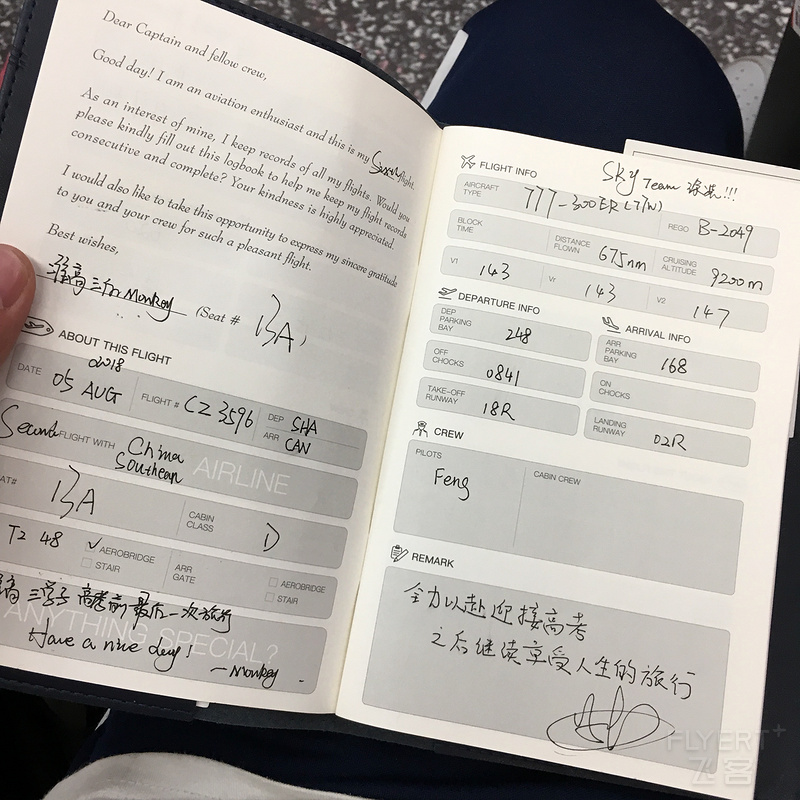 Dear Captain and fellow crew,
Good day! I am an aviation enthusiast and this is my flight.
As an interest of mine, I keep records of all my flights. Would you
please kindly fill out this logbook to help me keep my flight records
consecutive and complete? Your kindness is highly appreciated.
I would also like to take this opportunity to express my sincere gratitude
to you and your crew for such a pleasant flight.
Best wishes,
高三 Monkey (Seat # 13A)
ABOUT THIS FLIGHT
2018
DATE 05 AUG FLIGHT # CZ 3596 DEP SHA
ARR CAN
Second FLIGHT WITH China Southean AIRLINE
AT# 13A CABIN CLASS D
T2 48 ✓ AEROBRIDGE STAIR ARR GATE AEROBRIDGE STAIR
高三学子 高考前最后一次旅行
ANYTHING SPECIAL?
Have a nice day!
—Monkey
FLIGHT INFO
Sky Team !!!
AIRCRAFT TYPE 777-300ER (77W) REGO B-2049
BLOCK TIME DISTANCE FLOWN 675nm CRUISING ALTITUDE 9200m
V1 143 Vr 143 V2 147
DEPARTURE INFO
DEP PARKING BAY 248
OFF CHOCKS 0841
TAKE-OFF RUNWAY 18R
ARRIVAL INFO
ARR PARKING BAY 168
ON CHOCKS
LANDING RUNWAY 02R
CREW
PILOTS Feng
CABIN CREW
REMARK
全力以赴迎接高考
之后继续享受人生的旅行
FLYERT+
飞客